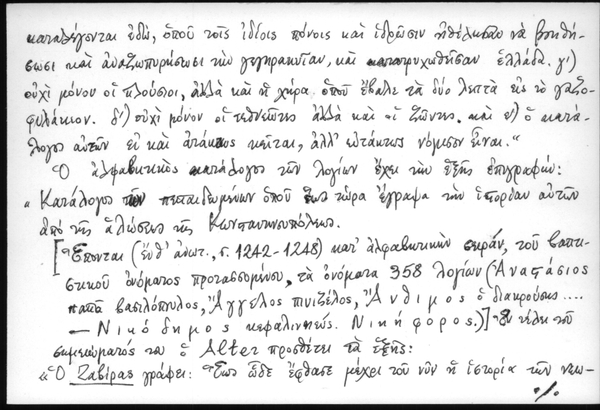 καταλέγονται ἐδῶ, ὁποῦ τοῖς ἰδίοις πόνοις καὶ ἱδρῶσιν ἠθέλησαν νὰ βοηθή-
σωσι καὶ ἀναζωπυρήσωσι τὴν γεγηρακυῖαν, καὶ κατατρυχωθεῖσαν ἑλλάδα. γ΄)
οὐχὶ μόνον οἱ πλούσιοι, ἀλλὰ καὶ ἡ χήρα ὁποῦ ἔβαλε τὰ δύο λεπτὰ εἰς τὸ γαζο-
φυλάκιον. δ΄) οὐχὶ μόνον οἱ τεθνεῶτες ἀλλὰ καὶ οἱ ζῶντες. καὶ ε) ὁ κατά-
λογος αὐτῶν εἰ καὶ ἀτάκτως κεῖται, ἀλλ' εὐτάκτως νόμισον εἶναι."
Ὁ ἀλφαβητικὸς κατάλογος τῶν λογίων ἔχει τὴν ἑξῆς ἐπιγραφήν:
"Κατάλογος τῶν πεπαιδευμένων ὁποῦ ἕως τώρα ἔγραψα τὴν ἱστορίαν αὐτῶν
ἀπὸ τῆς ἁλώσεως τῆς Κωνσταντινουπόλεως.
[Ἕπονται (ἔνθ' ἀνωτ., σ. 1242-1248) κατ' ἀλφαβητικὴν σειράν, τοῦ βαπτι-
στικοῦ ὀνόματος προτασσομένου, τὰ ὀνόματα 358 λογίων (Ἀναστάσιος
παπᾶ βασιλόπυλος, Ἄγγελος πινιζέλος, Ἄνθιμος ὁ διακρούσης....
— Νικόδημος κεφαλινηεύς. Νικηφόρος.)] Ἐν τέλει τοῦ
σημειώματός του ὁ Alter προσθέτει τὰ ἑξῆς:
"Ὁ Ζαβίρας γράφει: Ἕως ὧδε ἔφθασε μέχρι τοῦ νῦν ἡ ἱστορία τῶν νεω-
./.